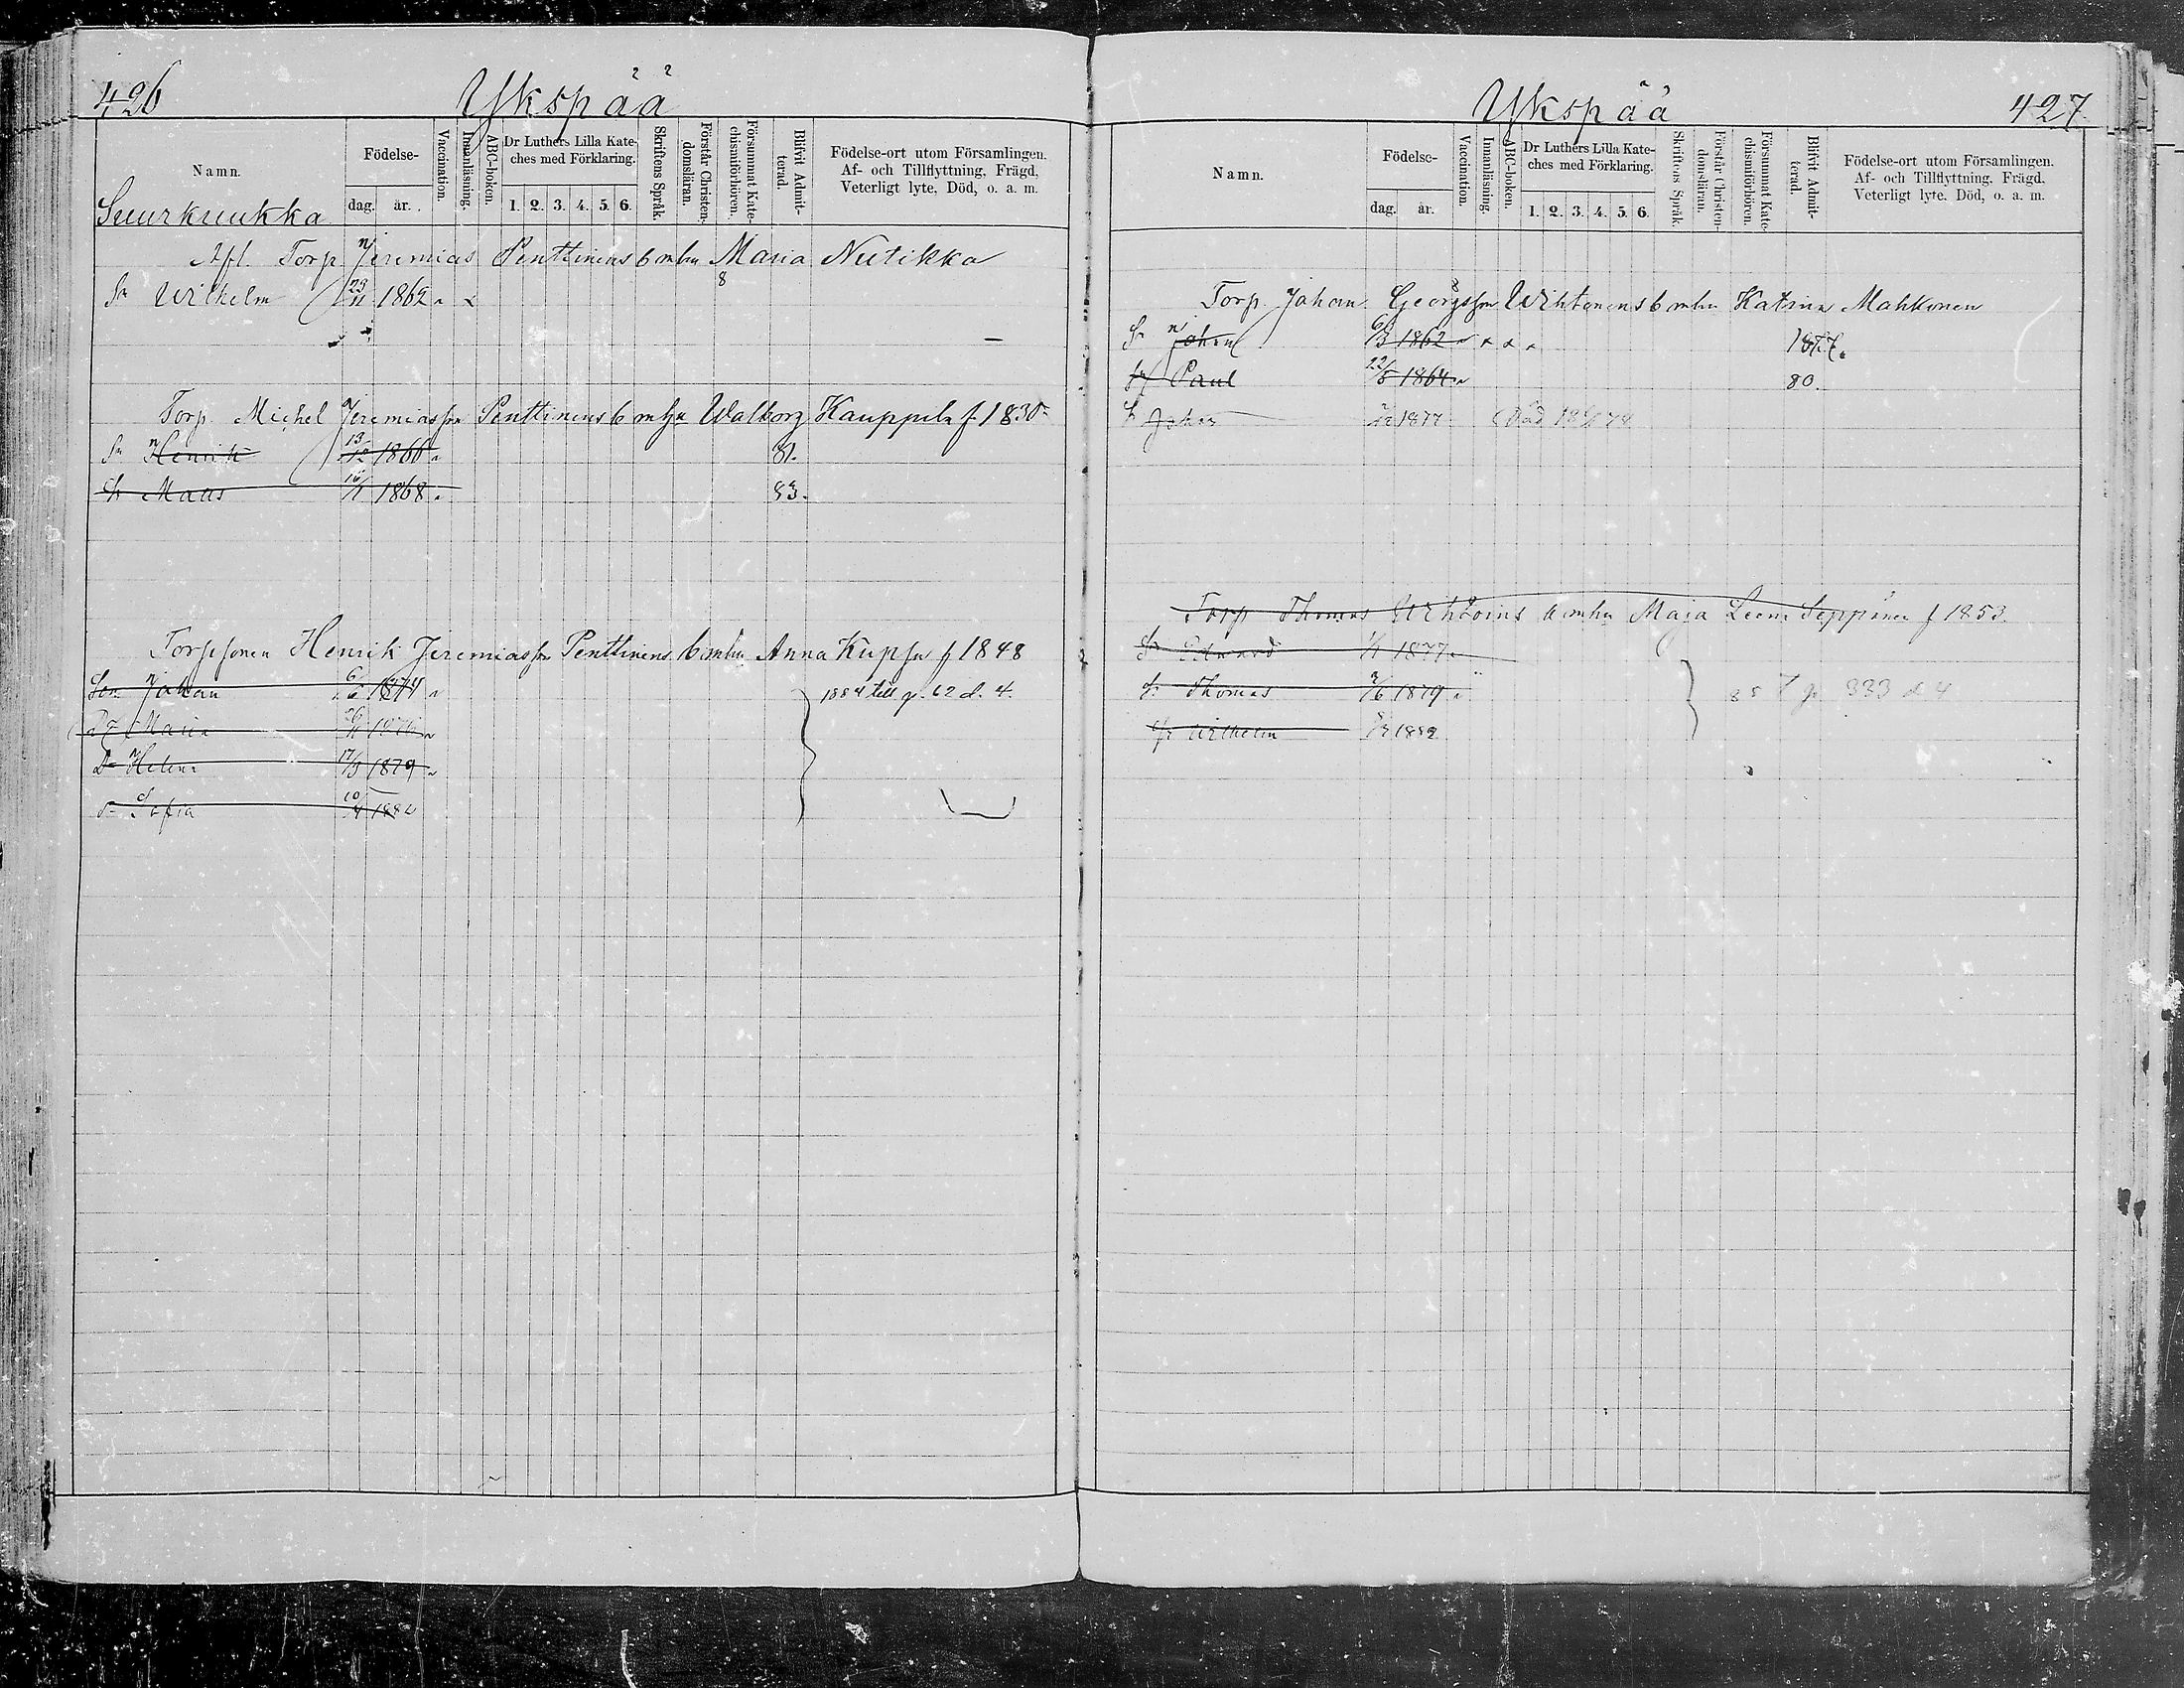 426
Ykspää
Namn.
Födelse-
dag. år.
Vaccination.
Innanläsning.
ABC-boken.
Dr Luthers Lilla Kate-
ches med Förklaring.
1. 2. 3. 4. 5. 6.
Skriftens Språk.
Förstår Christen-
domsläran.
Försummat Kate-
chismiförhören.
Blifvit Admit-
terad.
Födelse-ort utom Församlingen.
Af- och Tillflyttning, Frägd,
Veterligt lyte, Död, o. a. m.
Suurkuukka
Afl. Torp. Jeremias Penttinens b m hu Maria Nutikka
Sn Wilhelm 23/11 1862 8
Torp. Michel Jeremiasson Penttinens b m hu Walborg Kauppila f. 1830
Sn Henrik 13/12 1866 81.
Sn Maas 16/1 1868. 83.
Torpsonen Henrik Jeremiasson Penttinens b m hu Anna Kupsu f 1848
Son Johan 1874 1884 till p. 62 d. 4.
Dr Maria
Dr Helena 17/3 1879
Dr Sofia 1882
427
Ykspää
Namn.
Födelse-
dag. år.
Vaccination.
Innanläsning
ABC-boken.
Dr Luthers Lilla Kate-
ches med Förklaring.
1. 2. 3. 4. 5. 6.
Skriftens Språk.
Förstår Christen-
domsläran.
Försummat Kate-
chismiförhören.
Blifvit Admit-
terad.
Födelse-ort utom Församlingen.
Af- och Tillflyttning, Frägd,
Veterligt lyte, Död, o. a. m.
Torp. Johan Georgsson Wihtonens b m hu Katrina Mahkonen
Sn Johan 6/3 1862
Sn Paul 22/5 1864 80.
Sn Johan 1877 Död 78
Torp Thomas b m hu Maja Leena Seppänen f 1853.
Sn Edward 1/1 1877
Sn Thomas 1879 85 T p 333 d 4
Sn Wilhelm 1882